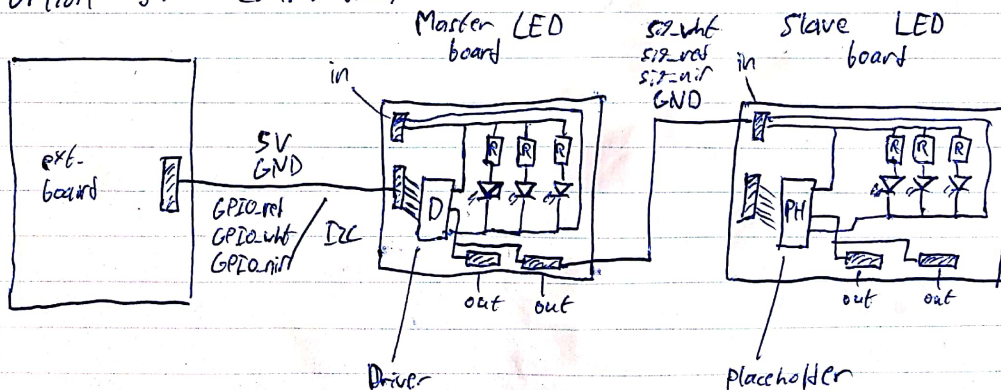 Master LED
board
in
sig_wht
sig_red
sig_nir
GND
Slave LED
board
in
ext-
board
5V
GND
GPIO_red
GPIO_wht
GPIO_nir
/ I2C
R R R
D
out out
Driver
R R R
PH
out out
placeholder